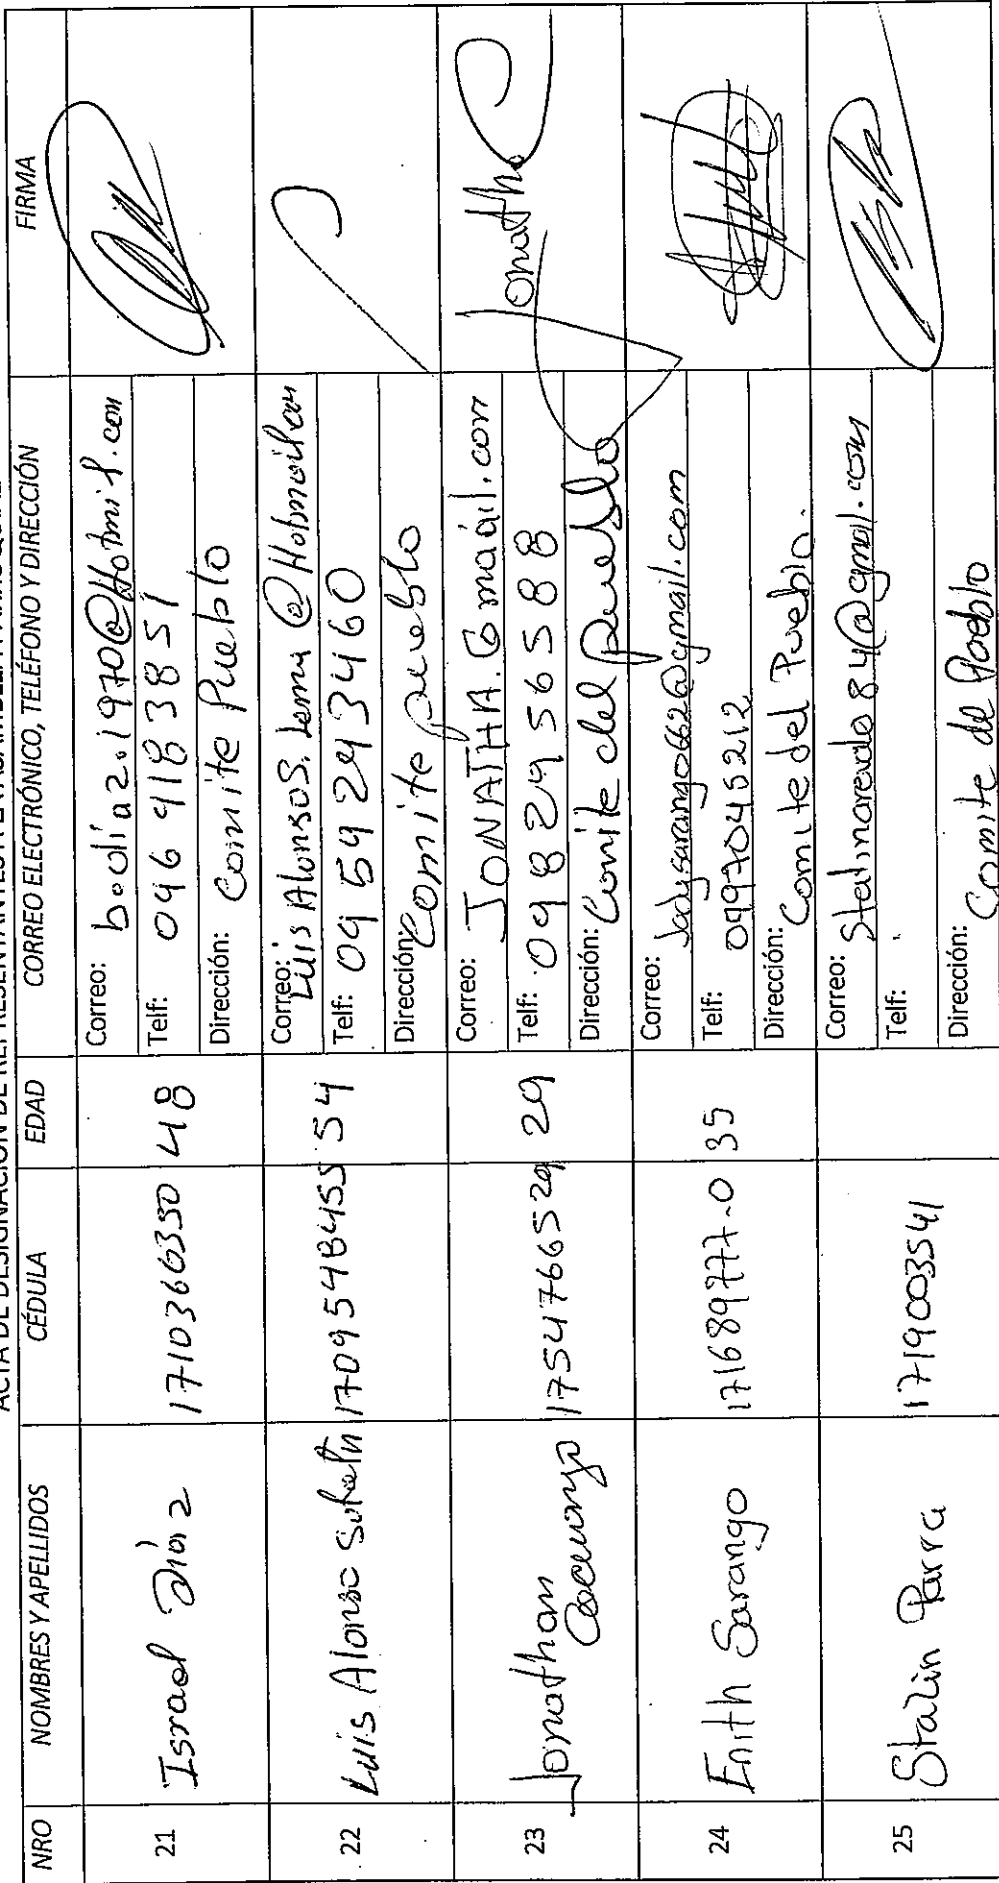 ACTA DE DESIGNACIÓN DE REPRESENTANTES
NRO NOMBRES Y APELLIDOS CÉDULA EDAD CORREO ELECTRÓNICO, TELÉFONO Y DIRECCIÓN FIRMA
21 Israel Díaz 1710366350 48
Correo: b.díaz.1970@Hotmil.com
Telf: 096 418 3851
Dirección: Comite Pueblo
22 Luis Alonso 1709548455 54
Correo: Luis AlonsoS. Lema @Hotmail
Telf: 09 59 2934 60
Dirección: Comite pueblo
23 Jonathan 1754766529 29 Jonatha
Correo: JONATHA.Gmail.com
Telf: 0982956588
Dirección: Comite del pueblo
24 Enith Sarango 171689777-0 35
Correo: Jadysarango662@gmail.com
Telf: 0997045212
Dirección: Comite del Pueblo.
25 Stalin Parra 1719003541
Correo: @gmail.com
Telf:
Dirección: Comite del Pueblo